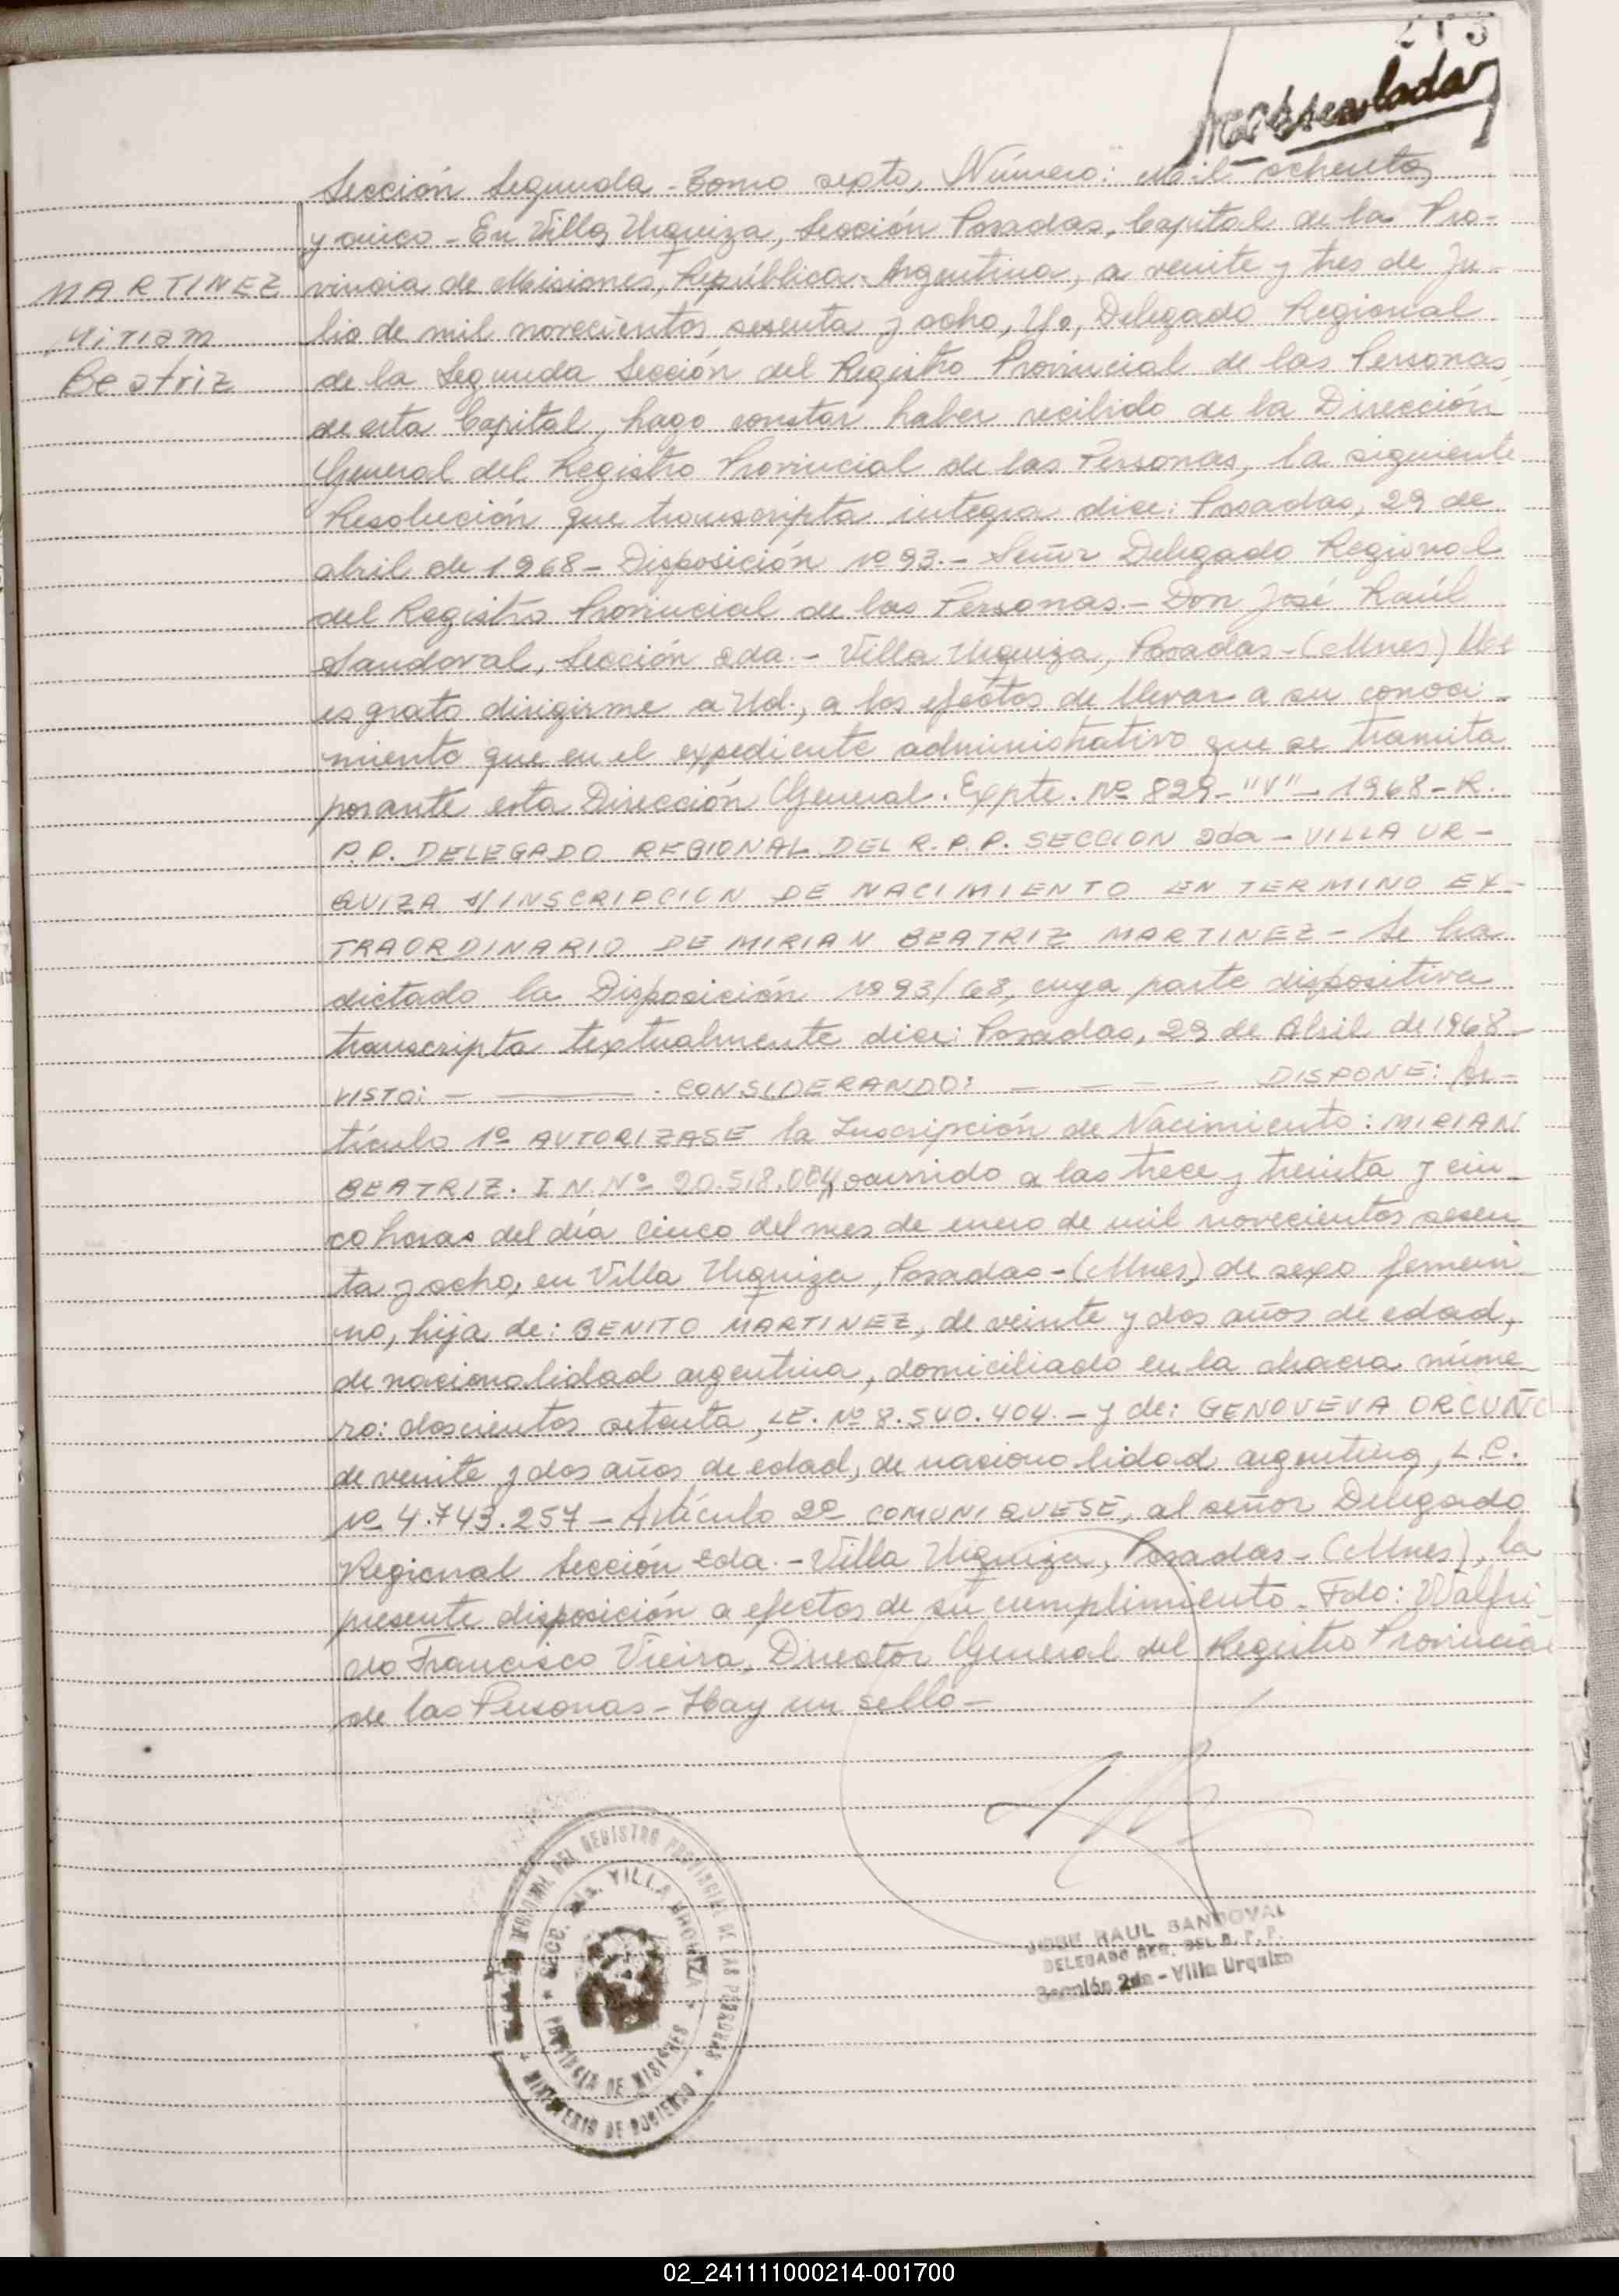 213
Sección Segunda - Tomo sexto, Número: Mil ochenta
y cinco - En Villa Urquiza, Sección Posadas, Capital de la Pro-
MARTINEZ
Miriam
Beatriz
vincia de Misiones, República Argentina, a veinte y tres de Ju-
lio de mil novecientos sesenta y ocho, Yo, Delegado Regional
de la Segunda Sección del Registro Provincial de las Personas
de esta Capital, hago constar haber recibido de la Dirección
General del Registro Provincial de las Personas, la siguiente
Resolución que transcripta integra dice: Posadas, 29 de
abril de 1968 - Disposición Nº 93.- Señor Delegado Regional
del Registro Provincial de las Personas.- Don José Raúl
Sandoval, Sección 2da.- Villa Urquiza, Posadas-(Mnes) Me
es grato dirigirme a Ud., a los efectos de llevar a su conoci-
miento que en el expediente administrativo que se tramita
por ante esta Dirección General. Expte. Nº 829-"V"-1968-R.
P.P. DELEGADO REGIONAL DEL R.P.P. SECCION 2da - VILLA UR-
QUIZA S/INSCRIPCION DE NACIMIENTO EN TERMINO EX-
TRAORDINARIO DE MIRIAN BEATRIZ MARTINEZ - Se ha
dictado la Disposición Nº 93/68, cuya parte dispositiva
transcripta textualmente dice: Posadas, 29 de Abril de 1968-
VISTO: - ——— . CONSIDERANDO: — — — — DISPONE: Ar-
tículo 1º AUTORIZASE la Inscripción de Nacimiento: MIRIAN
BEATRIZ. I.N.Nº 20.518.004, ocurrido a las trece y treinta y cin-
co horas del día cinco del mes de enero de mil novecientos sesen-
ta y ocho, en Villa Urquiza, Posadas-(Mnes) de sexo femeni-
no, hija de: BENITO MARTINEZ, de veinte y dos años de edad,
de nacionalidad argentina, domiciliado en la chacra núme-
ro: doscientos setenta, LE. Nº 8.540.404.- y de: GENOVEVA ORCUÑO
de veinte y dos años de edad, de nacionalidad argentina, L.C.
Nº 4.743.257 - Artículo 2º COMUNIQUESE, al señor Delegado
Regional Sección 2da.- Villa Urquiza, Posadas-(Mnes), la
presente disposición a efectos de su cumplimiento. Fdo: Walfri-
do Francisco Vieira, Director General del Registro Provincial
de las Personas - Hay un sello -
DEL REGISTRO PROVINCIAL DE LAS PERSONAS
SECC. 2da. VILLA URQUIZA
PROVINCIA DE MISIONES
MINISTERIO DE GOBIERNO
JOSE RAUL SANDOVAL
DELEGADO REG. DEL R. P. P.
Sección 2da - Villa Urquiza
02_241111000214-001700